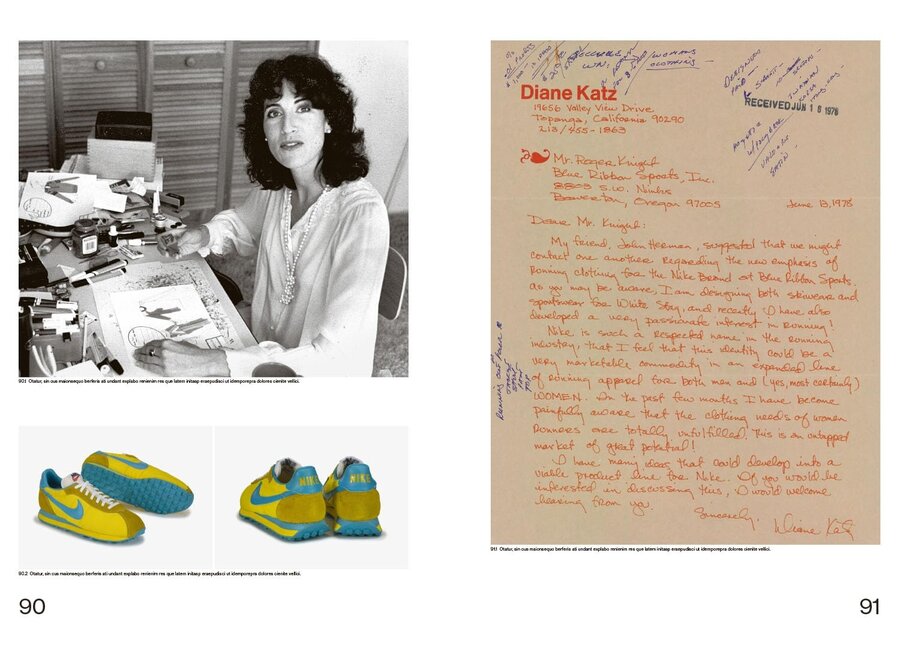 90.1 Otatur, sin cus maionsequo berferis ati undant explabo renienim res que latem initasp eraepudisci ut idemporepra dolores cienite vellici.
NIKE
90.2 Otatur, sin cus maionsequo berferis ati undant explabo renienim res que latem initasp eraepudisci ut idemporepra dolores cienite vellici.
90
WOMANS
CLOTHING
Diane Katz
19656 Valley View Drive
Topanga, California 90290
213/455-1863
RECEIVED JUN 16 1978
Mr. Roger Knight
Blue Ribbon Sports, Inc.
8809 S.W. Nimbus
Beaverton, Oregon 97005
June 13, 1978
Dear Mr. Knight:
My friend, John Herman, suggested that we might
contact one another regarding the new emphasis of
running clothing for the Nike Brand at Blue Ribbon Sports.
as you may be aware, I am designing both skiwear and
sportswear for White Stag, and recently I have also
developed a very passionate interest in running!
Nike is such a respected name in the running
industry, that I feel that this identity could be a
very marketable commodity in an expanded line
of running apparel for both men and (yes, most certainly)
WOMEN. In the past few months I have become
painfully aware that the clothing needs of women
runners are totally unfulfilled. This is an untapped
market of great potential!
I have many ideas that could develop into a
viable product line for Nike. If you would be
interested in discussing this, I would welcome
hearing from you.
Sincerely,
Diane Katz
91.1 Otatur, sin cus maionsequo berferis ati undant explabo renienim res que latem initasp eraepudisci ut idemporepra dolores cienite vellici.
91